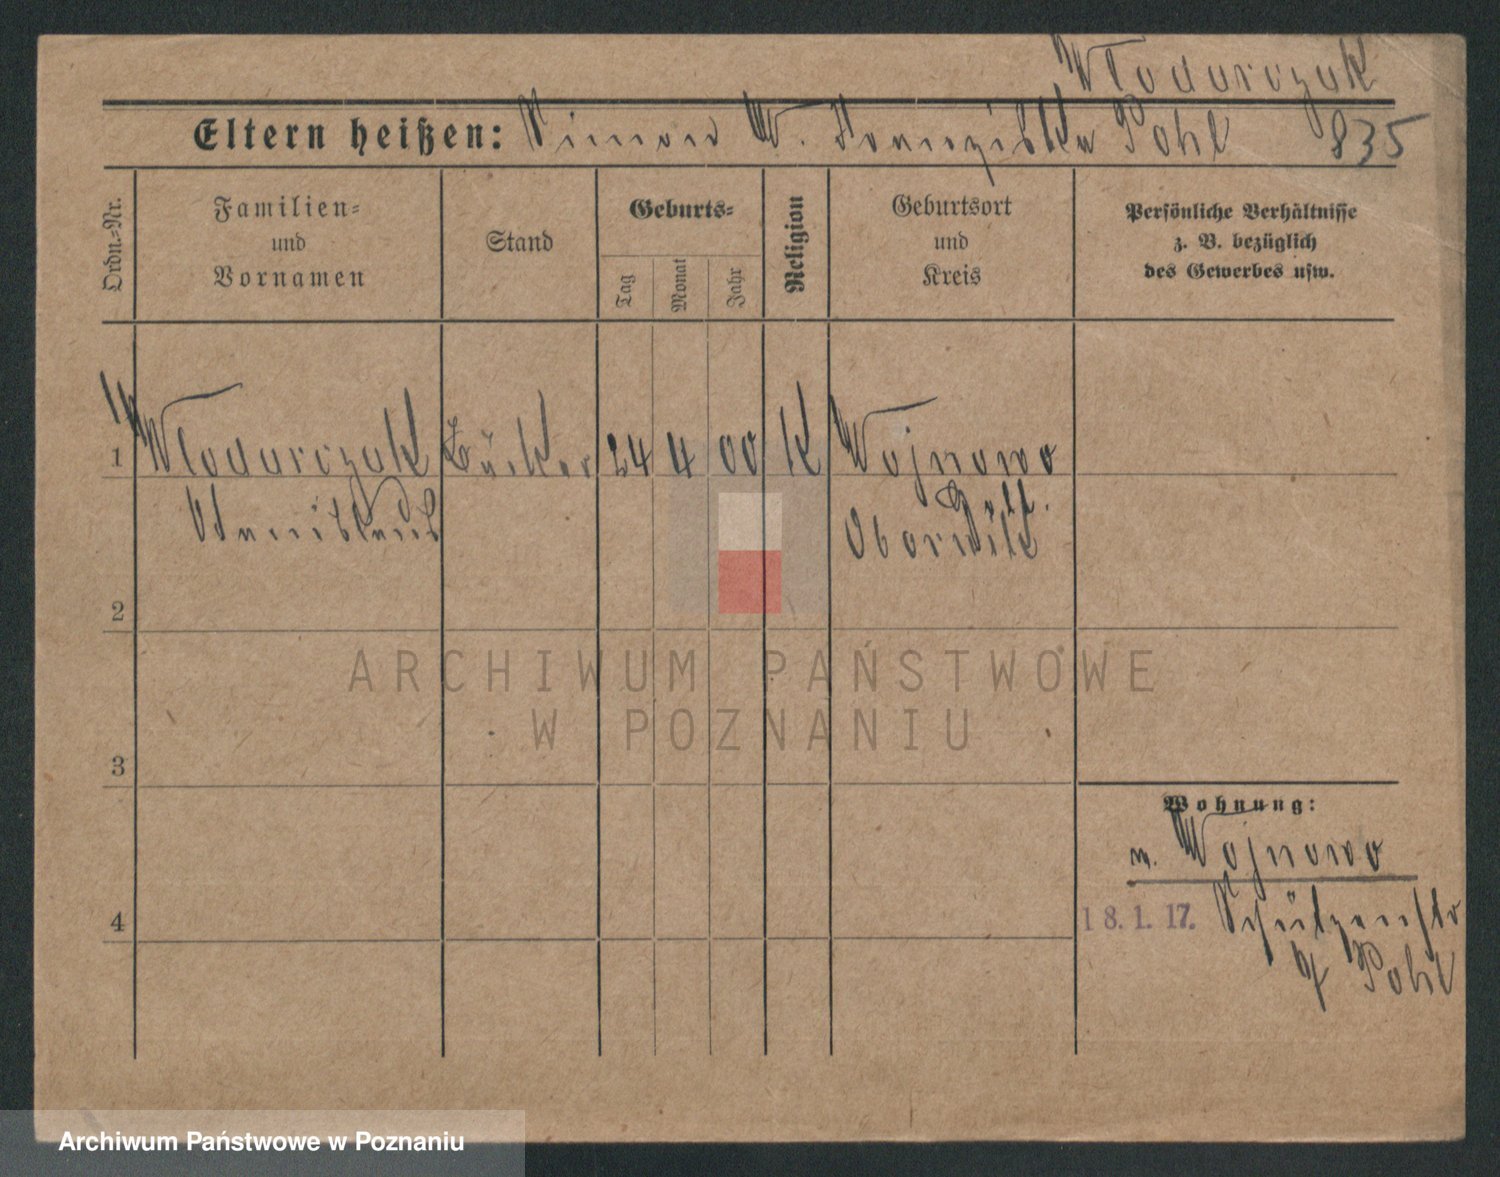 Włodarczak
Eltern heißen: Simon W. Franziska Pohl 835
Ordn.-Nr.
Familien-
und
Vornamen
Stand
Geburts-
Tag
Monat
Jahr
Religion
Geburtsort
und
Kreis
Persönliche Verhältnisse
z. B. bezüglich
des Gewerbes usw.
1 Włodarczak Bäcker 24 4 00 K Wojnowo
Stanislaus
Obornik
2
ARCHIWUM PAŃSTWOWE
W POZNANIU
3
Wohnung:
w. Wojnowo
4
18.1.17. Schützenstr
Pohl
Archiwum Państwowe w Poznaniu